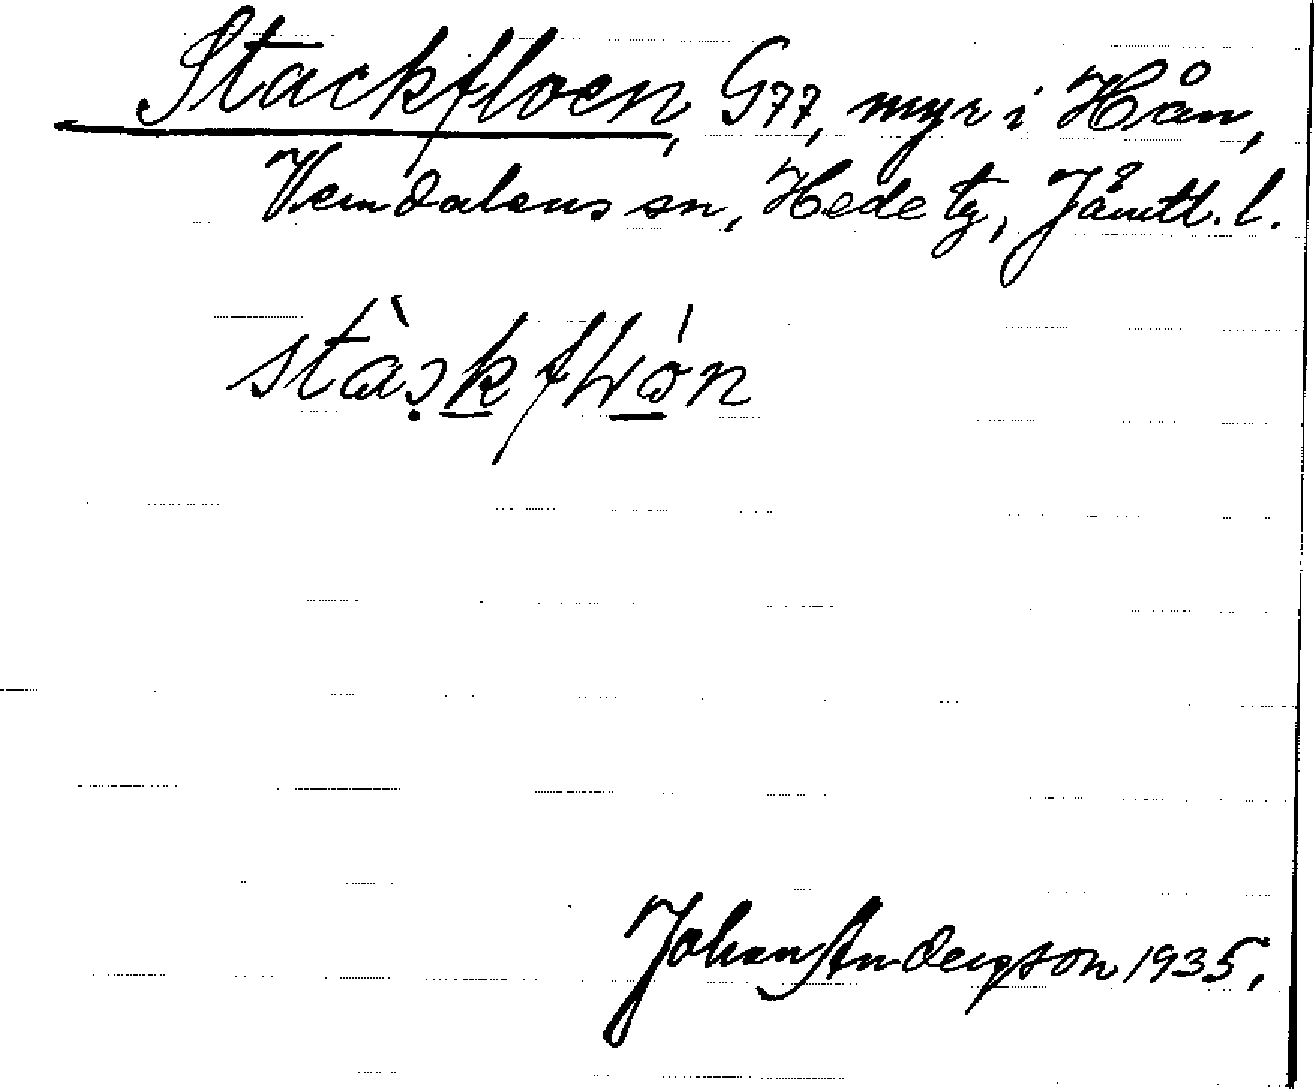 Stackfloen, G77, myr i Hån,
Vemdalens sn, Hede tg, Jämtl. l.
Johan Anderson 1935.